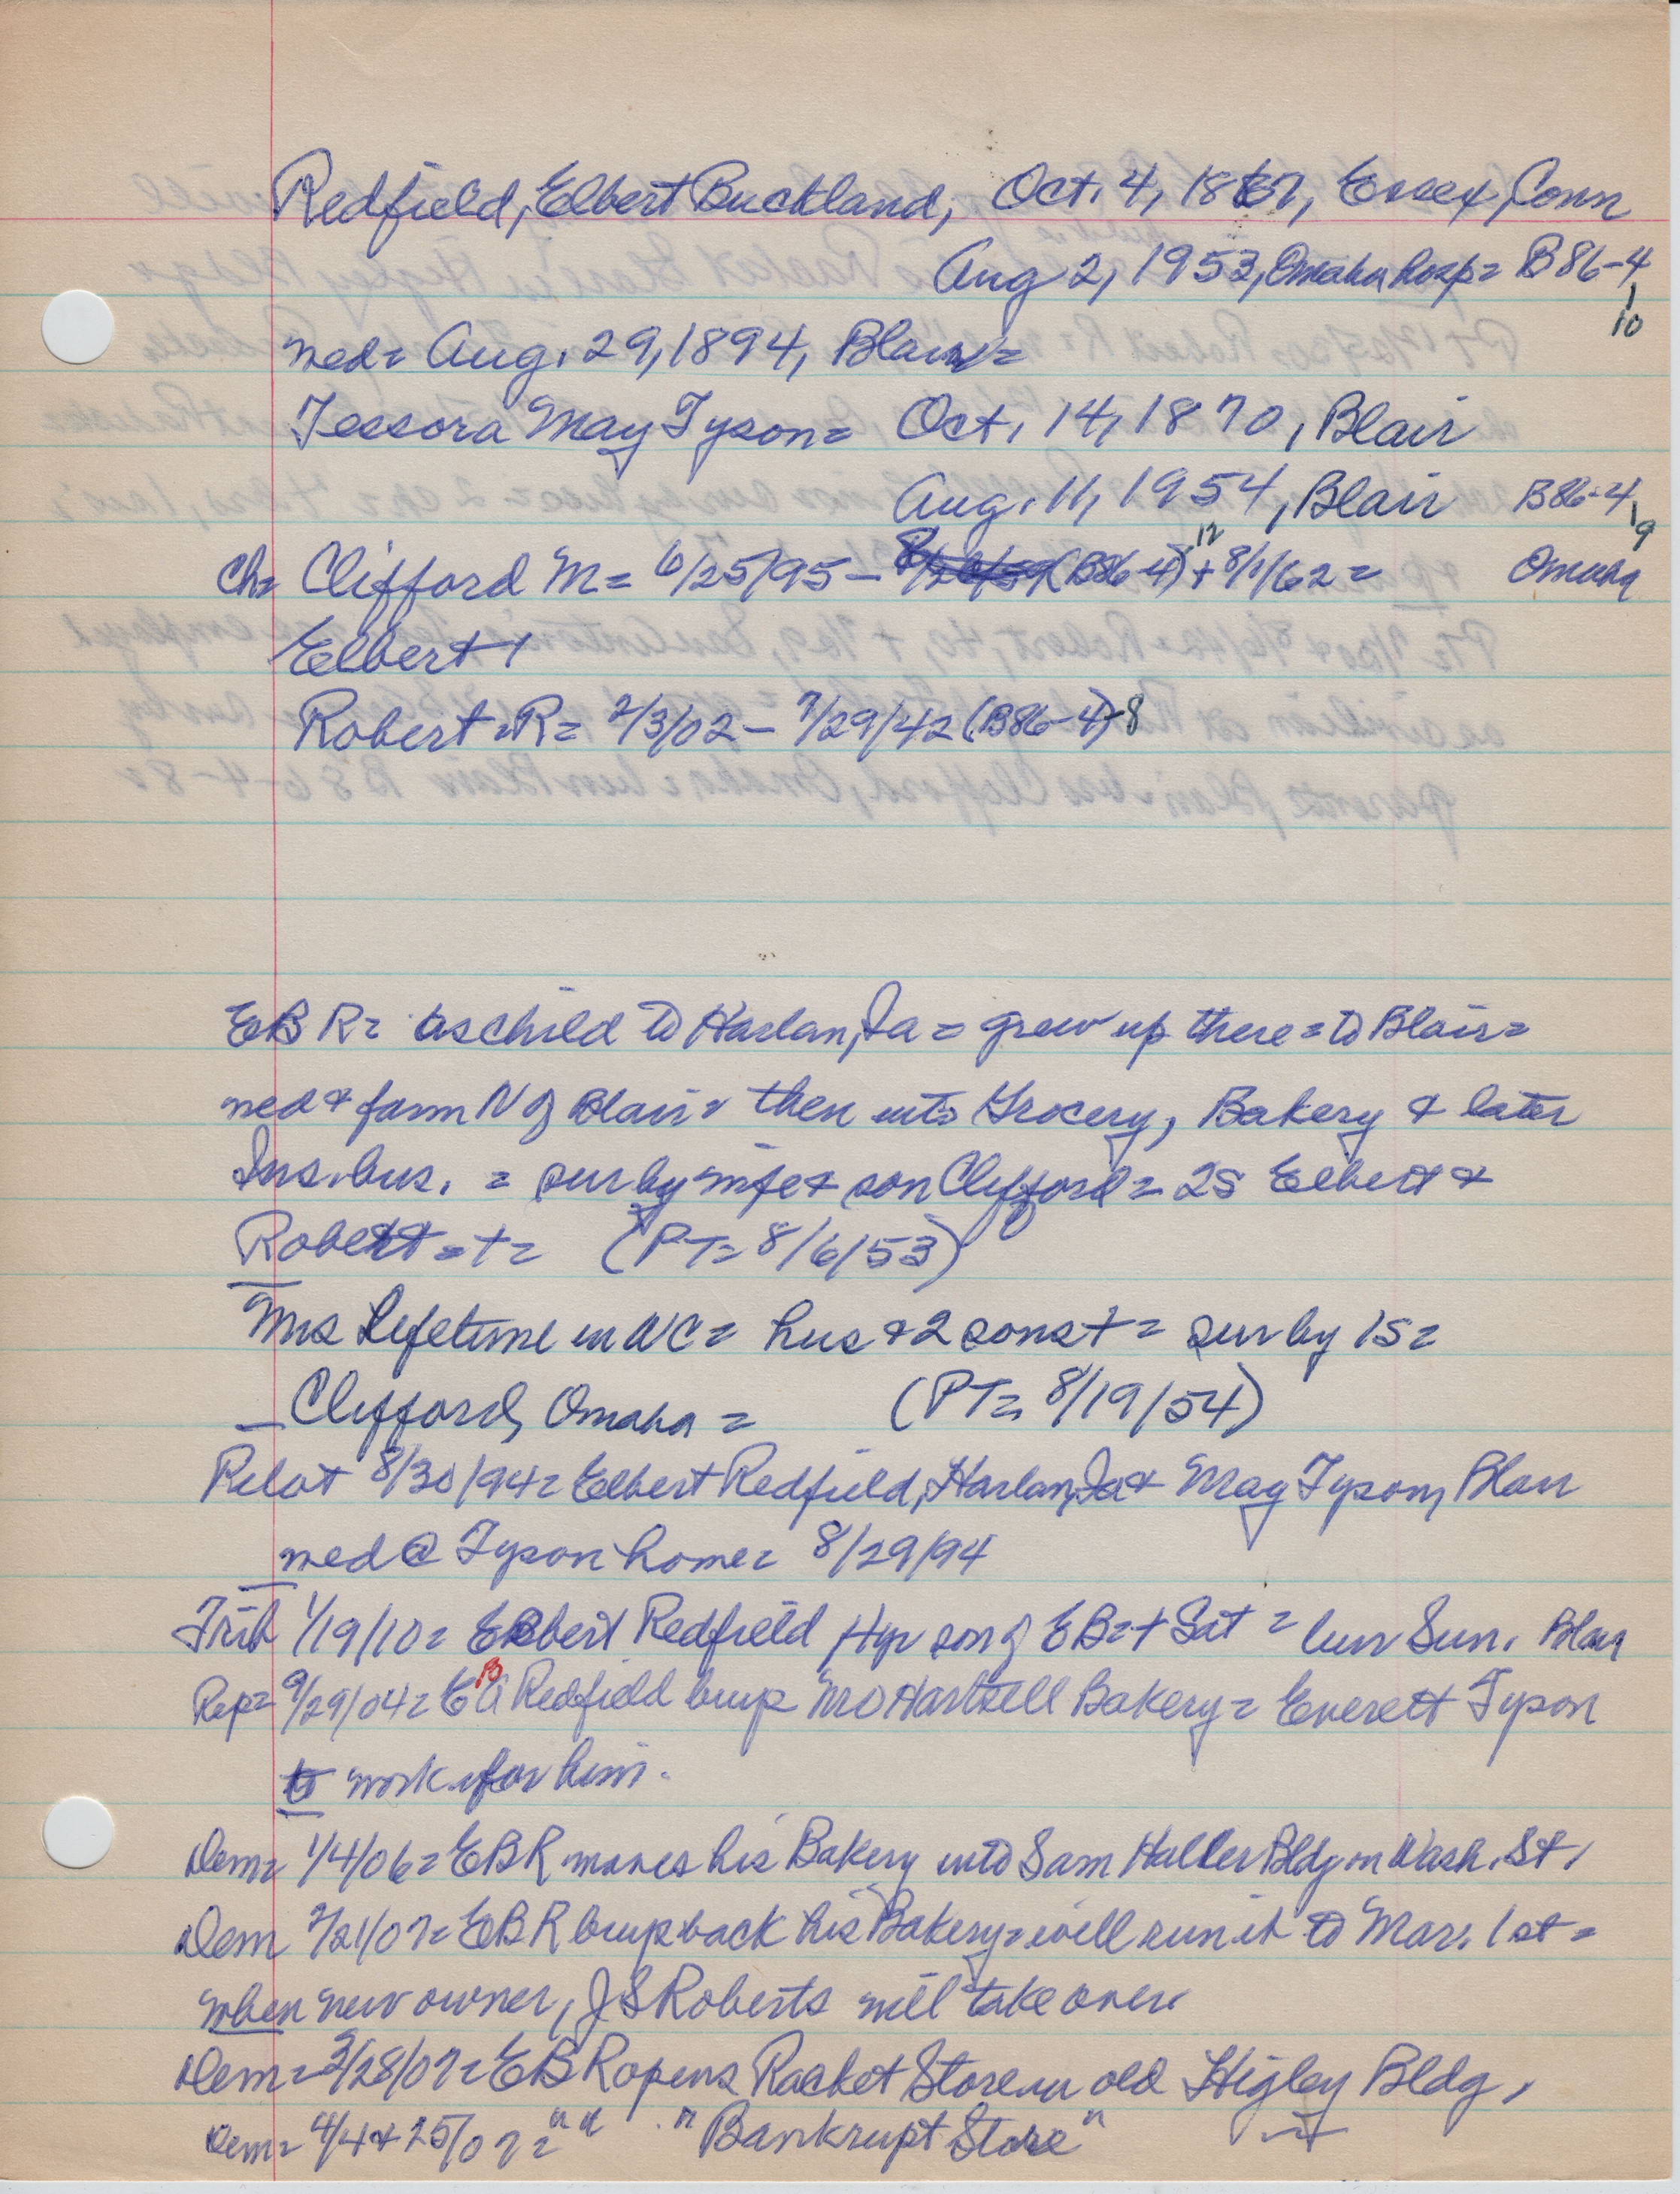 Redfield, Elbert Buckland, Oct. 4, 1867, Essex, Conn
Aug 2, 1953, Omaha hosp = B86-4
10
med = Aug. 29, 1894, Blair =
Tessora May Tyson = Oct. 14, 1870, Blair
Aug. 11, 1954, Blair B86-4
9
12
Ch = Clifford M = 6/25/95 - (B86-4) + 8/1/62 = Omaha
Elbert +
Robert = R = 2/3/02 - 7/29/42 (B86-4)-8
EBR = as child to Harlan, Ia = grew up there = to Blair =
med & farm N of Blair = then into Grocery, Bakery & later
Ins. bus. = sur by wife & son Clifford = 2S Elbert &
Robert = + = (PT = 8/6/53)
Mrs Lifetime in WC = hus & 2 sons + = sur by 1S =
Clifford, Omaha = (PT = 8/19/54)
Pilot 8/30/94 = Elbert Redfield, Harlan, Ia & May Tyson, Blair
med @ Tyson home = 8/29/94
Trib 1/19/10 = Elbert Redfield 14yr son of EB = + Sat = bur Sun. Blair
B
Rep = 9/29/04 = E Redfield buys Hartzell Bakery = Everett Tyson
to work for him.
Dem = 1/4/06 = EBR moves his Bakery into Sam Haller Bldg on Wash. St.
Dem 2/21/07 = EBR buys back his Bakery = will run it to Mar. 1st =
when new owner, J S Roberts will take over.
Dem = 3/28/07 = EBR opens Racket Store in old Higley Bldg,
Dem = 4/4 & 25/07 = " " " "Bankrupt Store"